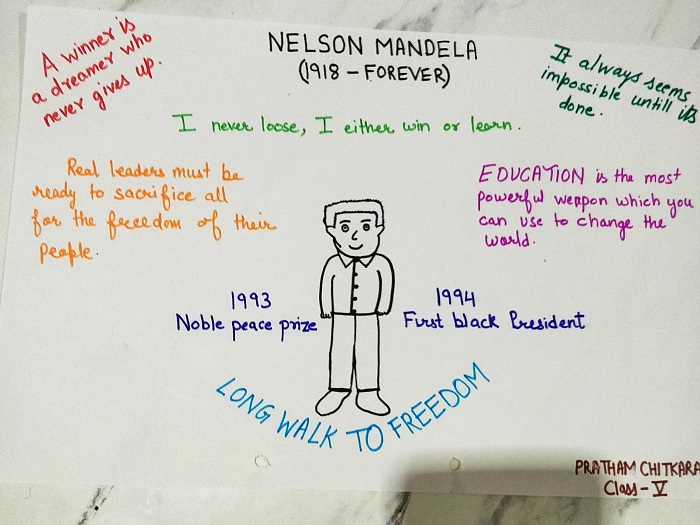 NELSON MANDELA
(1918 - FOREVER)
A winner is
a dreamer who
never gives up.
It always seems
impossible untill its
done.
I never loose, I either win or learn.
Real leaders must be
ready to sacrifice all
for the freedom of their
People.
EDUCATION is the most
powerful weapon which you
can use to change the
world.
1993
Noble peace prize
1994
First black President
LONG WALK TO FREEDOM
PRATHAM CHITKARA
Class - V